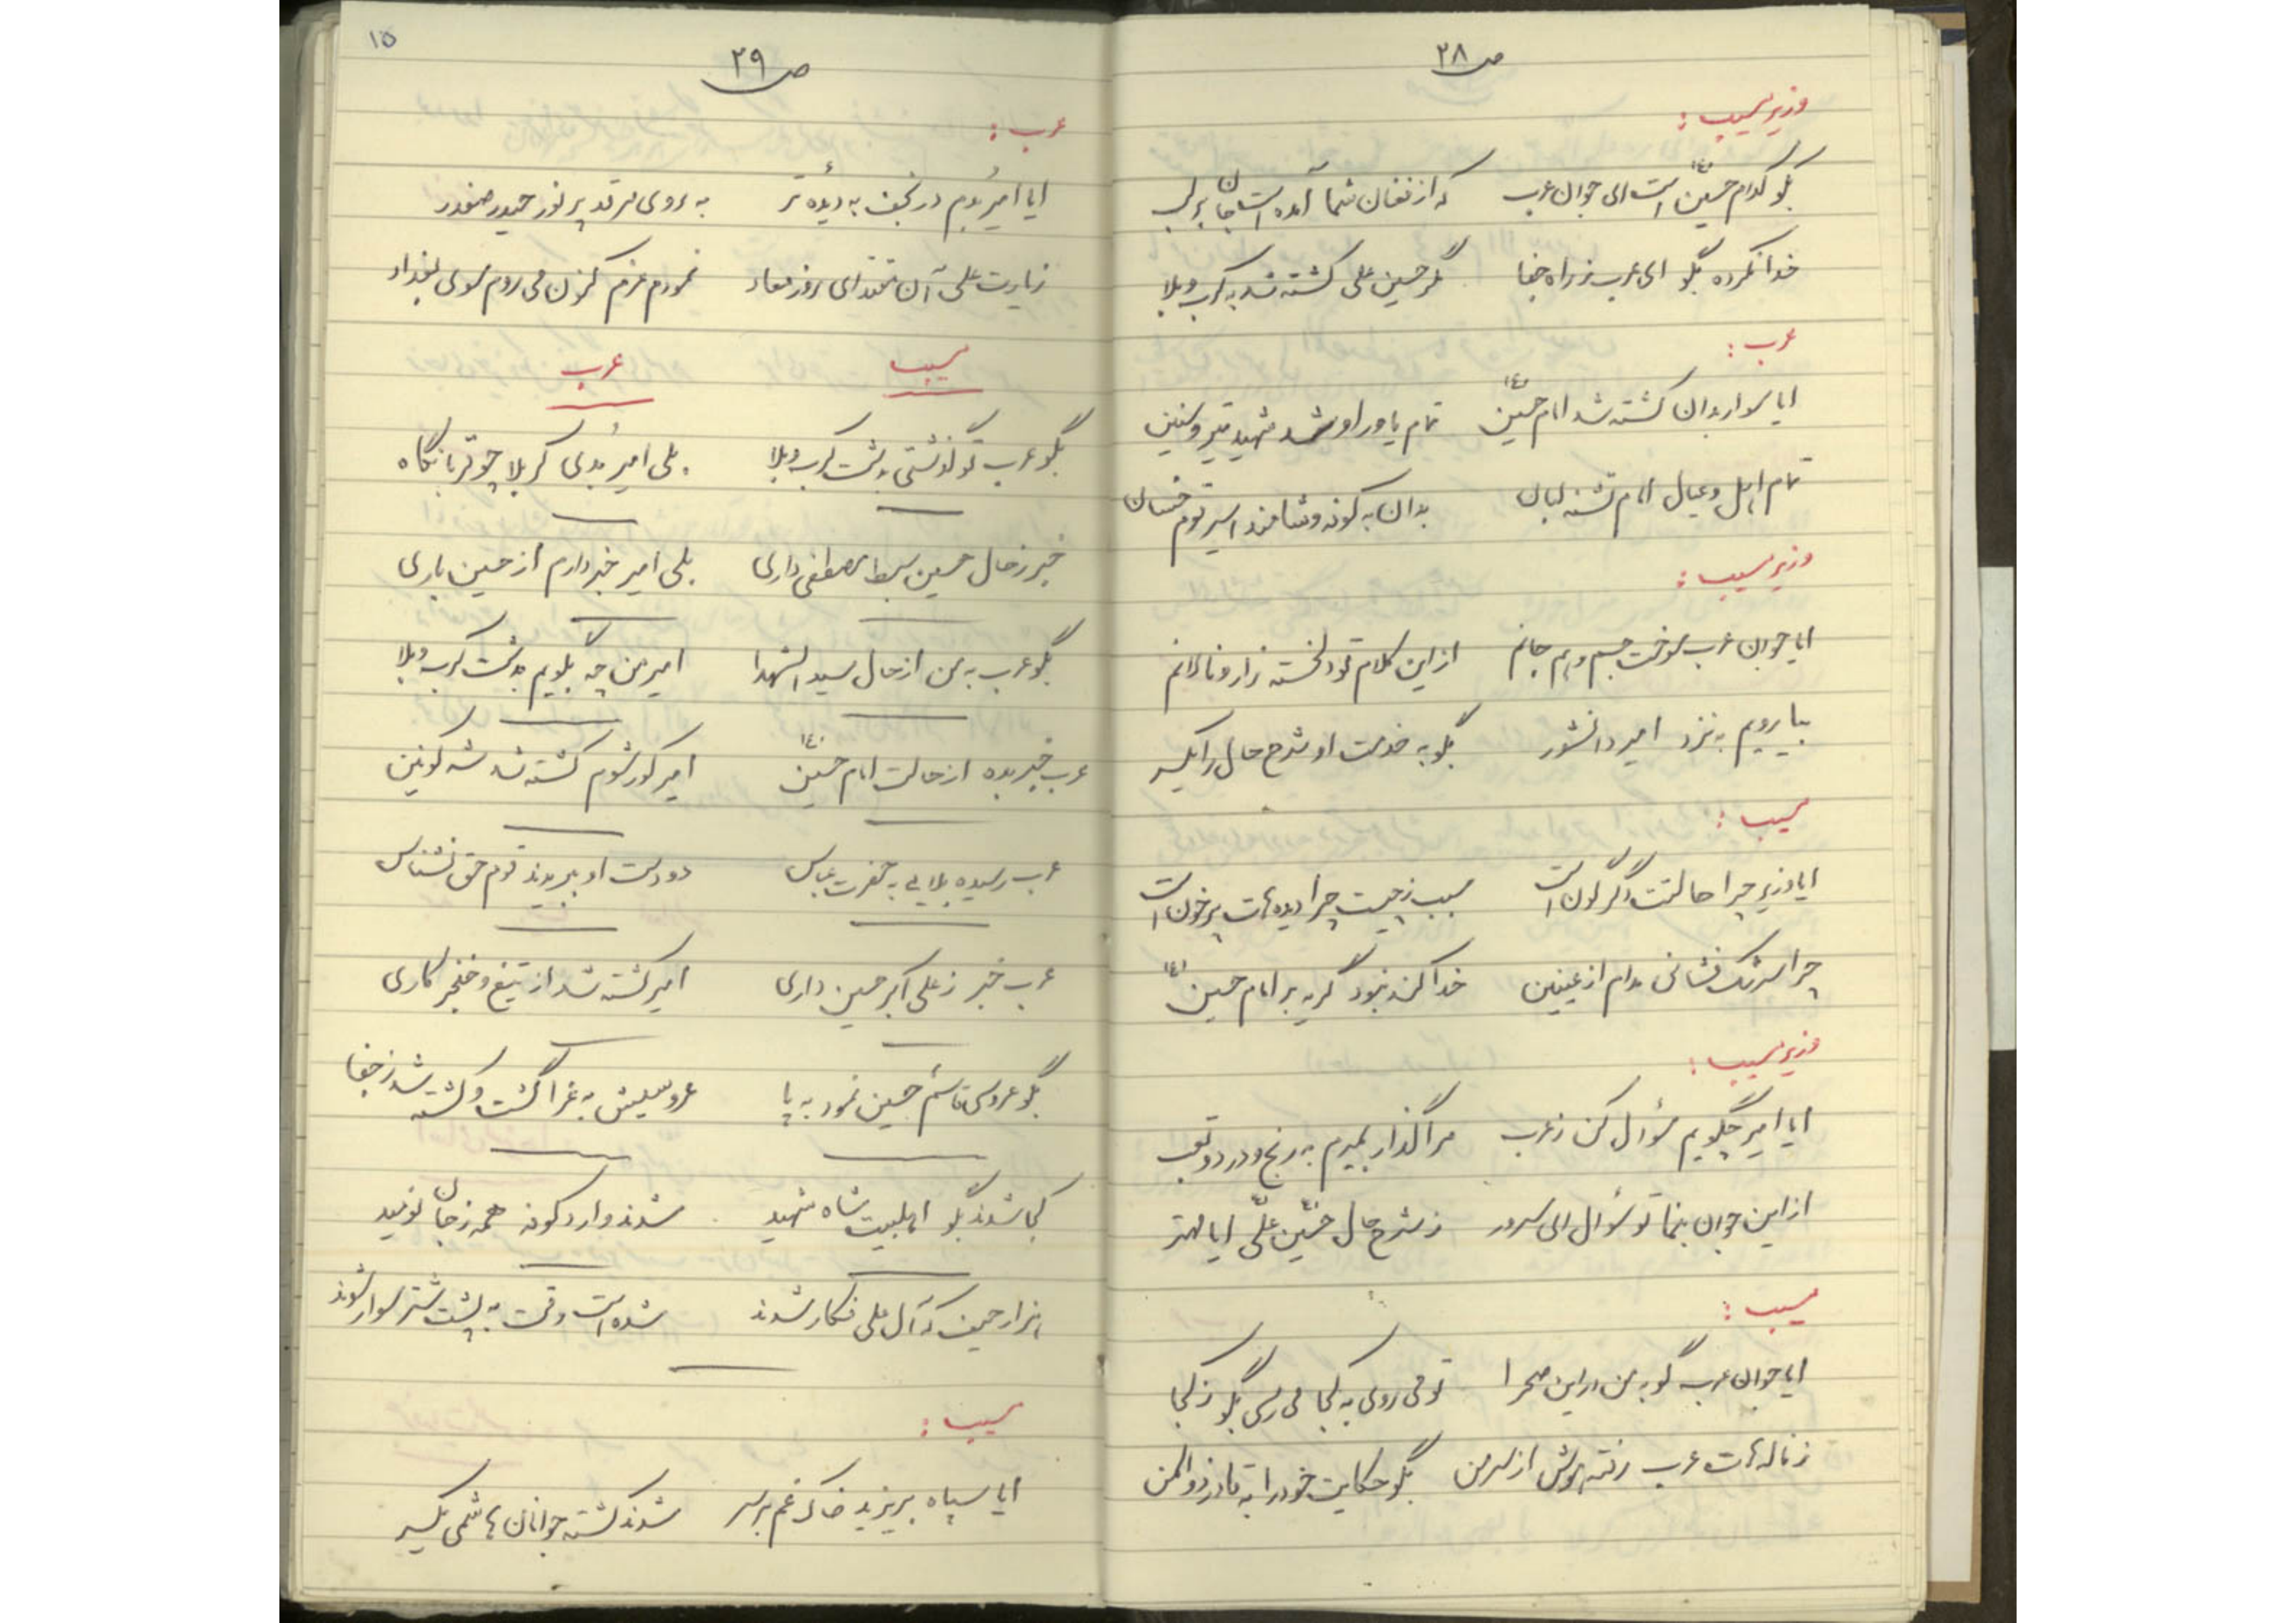 ص ۲۸
وزیر مسیب :
بگو کدام حسین است ای جوان عرب که از فغان شما آمده است جان بر لب
خدا نکرده بگو ای عرب ز راه جفا مگر حسین علی کشته شد به کرب و بلا
عرب :
ایا سوار بدان کشته شد امام حسین تمام یاور او شد شهید تیر و سنین
تمام اهل و عیال امام تشنه لبان بدان به کوفه و شامند اسیر قوم خسان
وزیر مسیب :
ایا جوان عرب سوخت جسم و هم جانم از این کلام تو دلخسته زار و نالانم
بیا رویم به نزد امیر دانشور بگو به خدمت او شرح حال را یکسر
مسیب :
ایا وزیر چرا حالتت دگرگون است سبب ز چیست چرا دیده‌ات پر خون است
چرا سرشک فشانی مدام از عینین خدا کند نبود گریه بر امام حسین
وزیر مسیب :
ایا امیر چگویم سؤال کن ز عرب مرا گذار بمیرم به رنج و درد و تعب
از این جوان بنما تو سؤال ای سرور ز شرح حال حسین علی ایا مهتر
مسیب :
ایا جوان عرب گو به من در این صحرا تو می روی به کجا می رسی بگو ز کجا
ز ناله‌ات عرب رفته هوش از سر من بگو حکایت خود را به قادر ذوالمن
۱۵
ص ۲۹
عرب :
ایا امیر بدم در نجف به دیده تر به روی مرقد پر نور حیدر صفدر
زیارت علی آن مقتدای روز معاد نمودم عزم کنون می روم سوی بغداد
مسیب عرب
بگو عرب تو گذشتی به دشت کرب و بلا بلی امیر بدی کربلا چو قربانگاه
خبر ز حال حسین سبط مصطفی داری بلی امیر خبر دارم از حسین باری
بگو عرب به من از حال سید الشهدا امیر من چه بگویم به دشت کرب و بلا
عرب خبر بده از حالت امام حسین امیر کور شوم کشته شد شه کونین
عرب رسیده بلایی به حضرت عباس دو دست او ببریدند قوم حق نشناس
عرب خبر ز علی اکبر حسین داری امیر کشته شد از تیغ و خنجر کاری
بگو عروسی قاسم حسین نمود به پا عروسیش به عزا گشت و کشته شد ز جفا
کجا شدند بگو اهلبیت شاه شهید شدند وارد کوفه همه ز جان نومید
هزار حیف که آل علی فکار شدند شده است وقت به پشت شتر سوار شوند
مسیب :
ایا سپاه بریزید خاک غم بر سر شدند کشته جوانان هاشمی یکسر